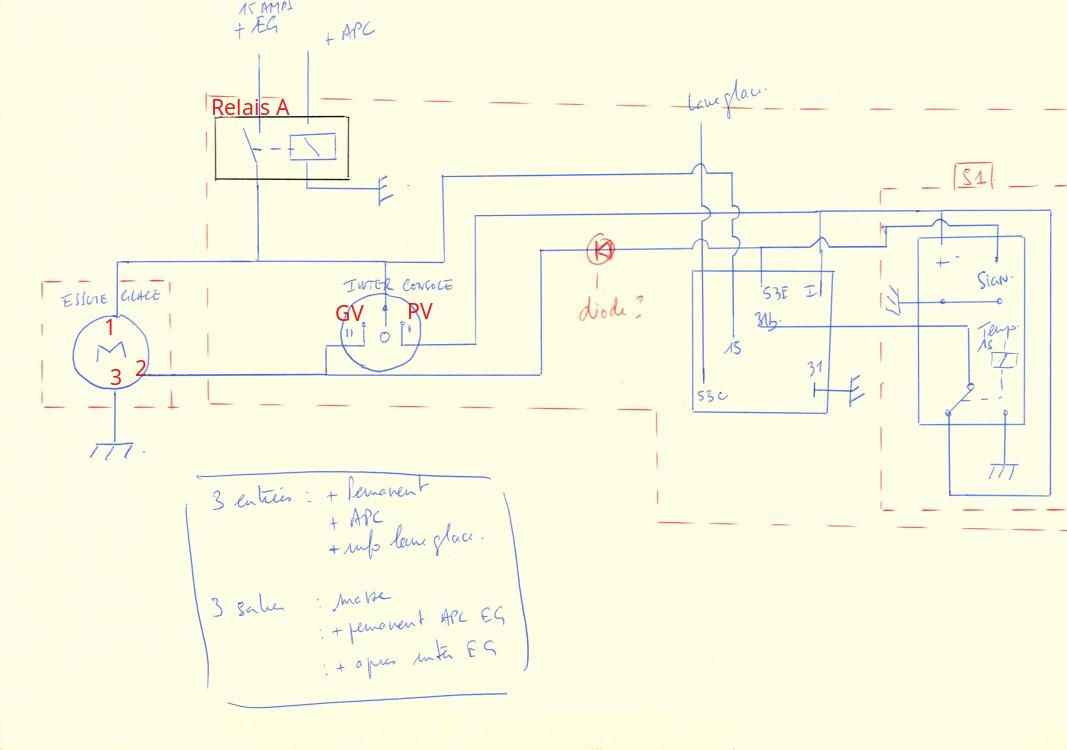 15 AMPS
+ EG
+ APC
Relais A
Lave glace.
S1
ESSUIE GLACE
INTER CONSOLE
GV
PV
II
O
I
1
M
2
3
diode ?
53E
I
31b
15
31
53c
+
Sign.
Temp.
15
3 entrées : + Permanent
+ APC
+ info lave glace.
3 sorties : masse
: + permanent APC EG
: + apres inter EG